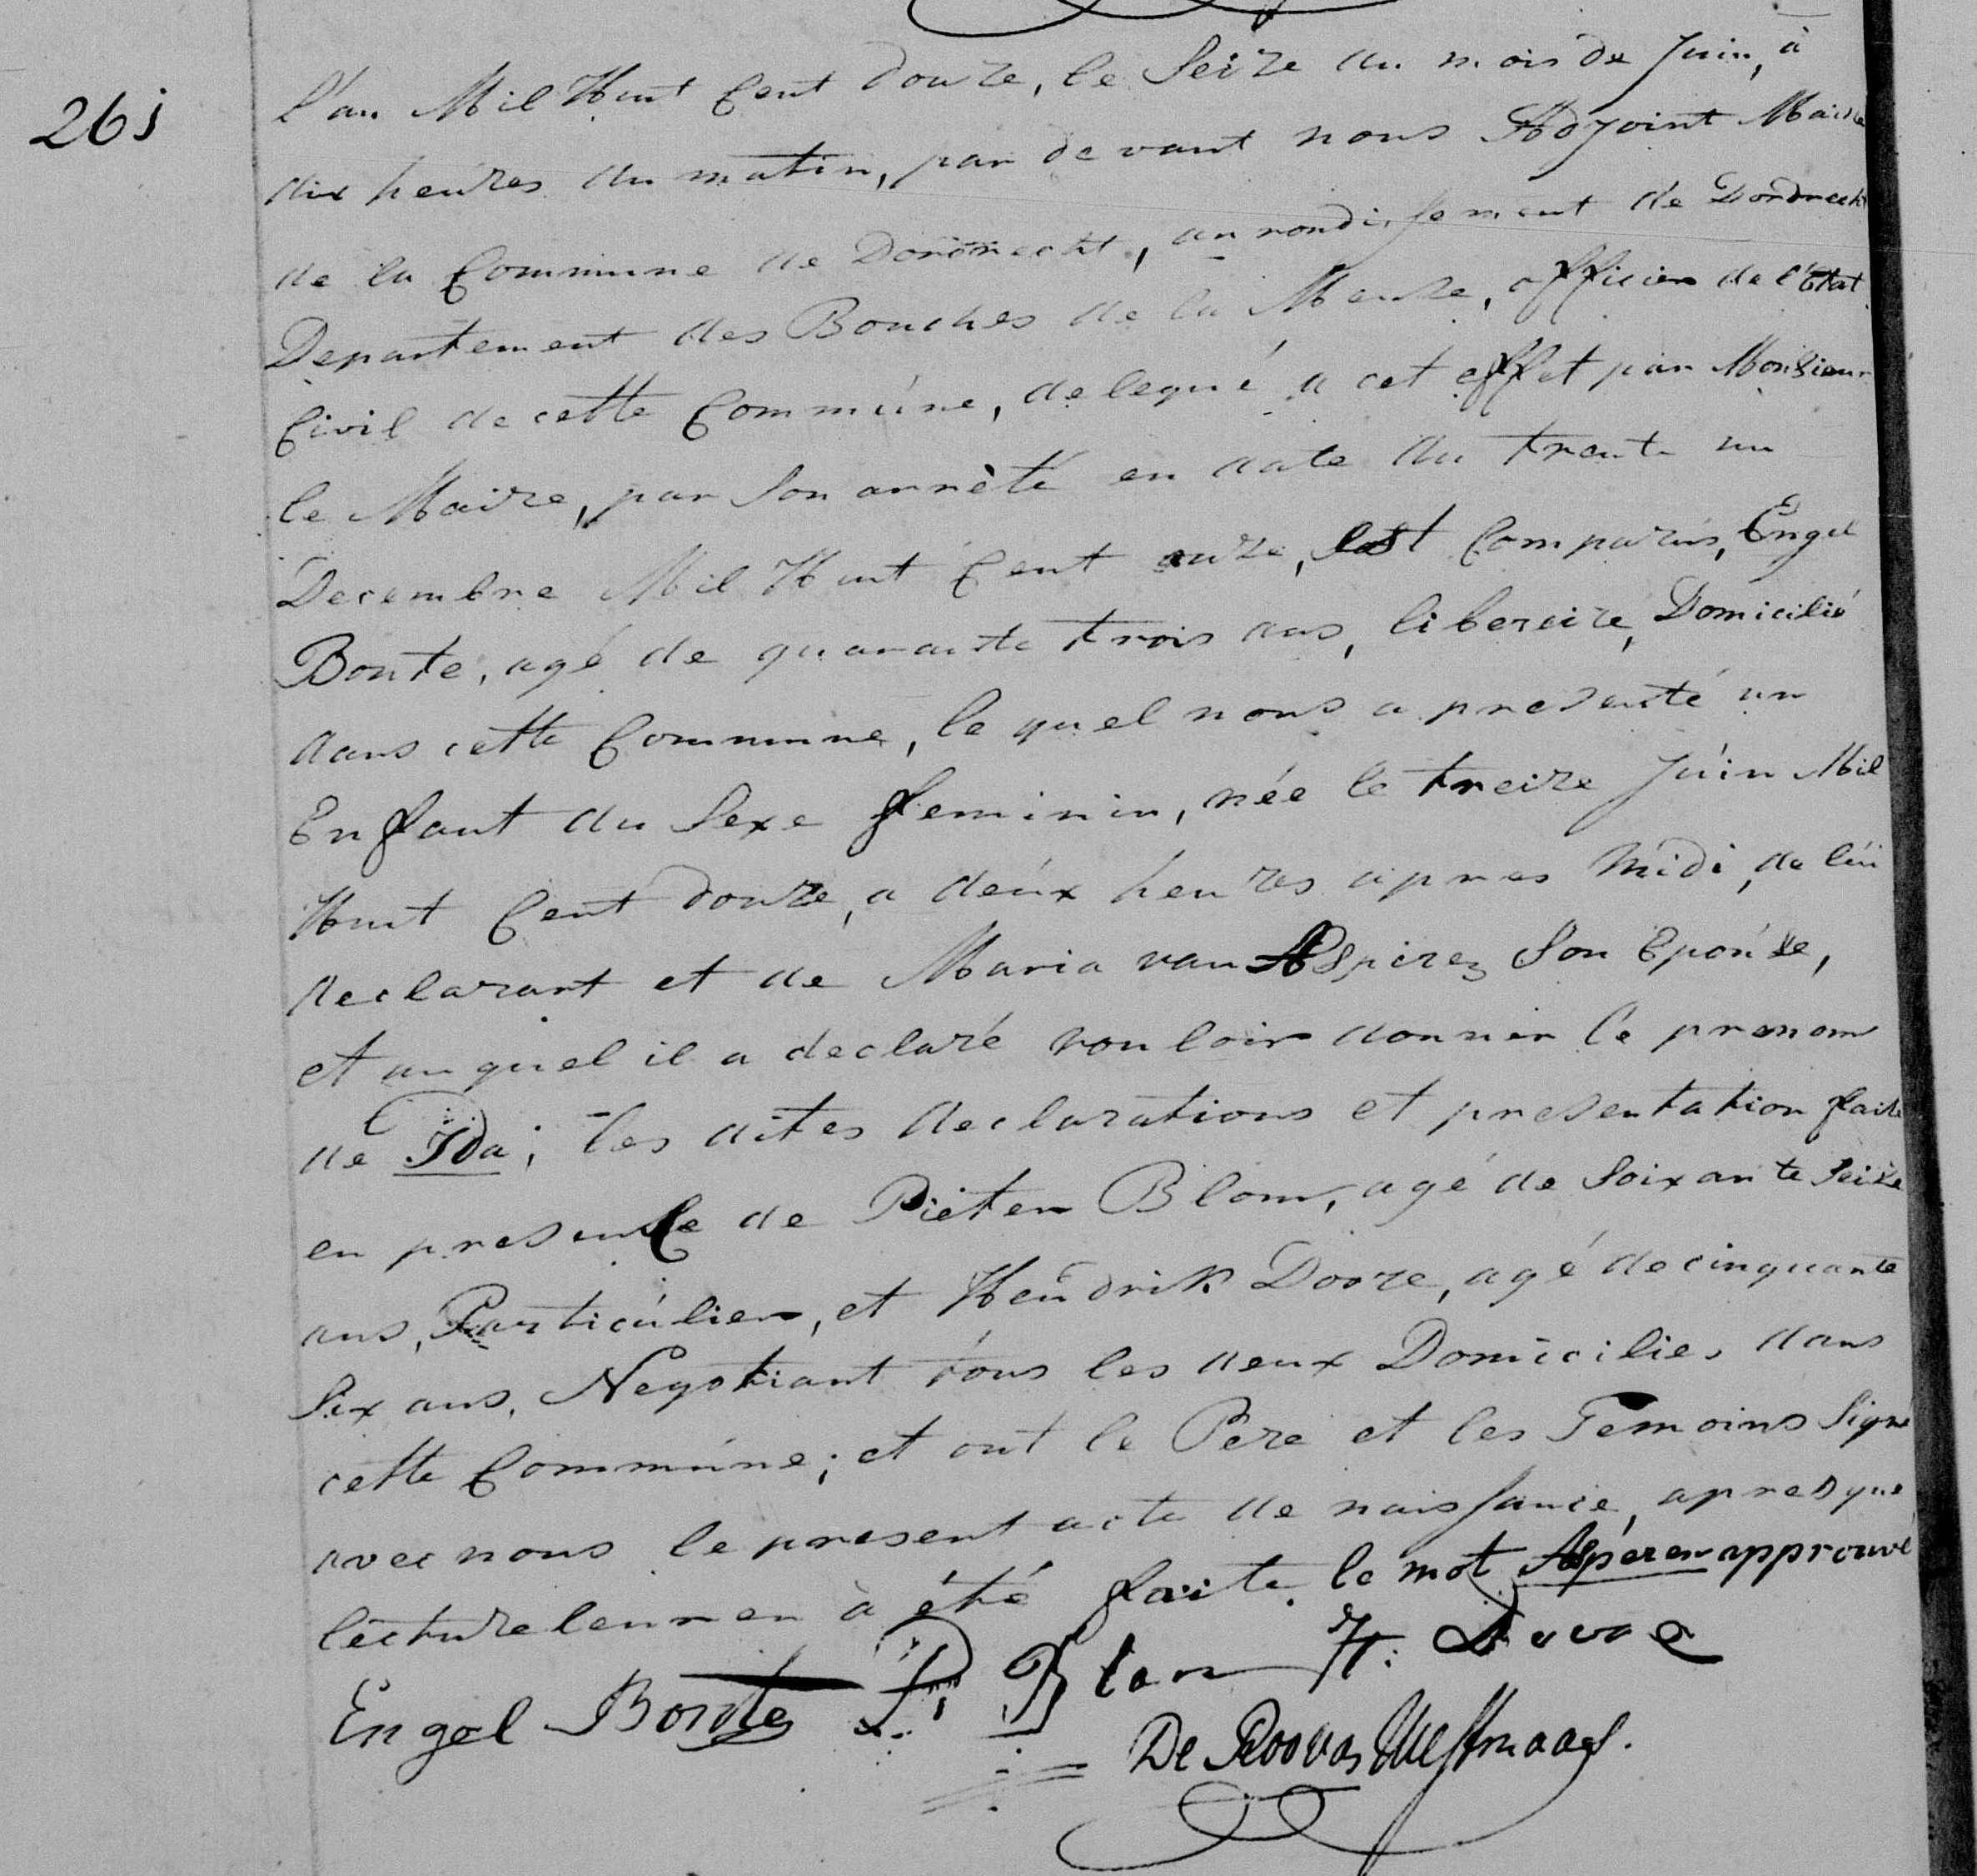 261
l'an Mil Huit Cent douze, le Seize du mois de Juin, à
dix heures du matin, par devant nous Adjoint Maire
de la Commune de Dordrecht, arrondissement de Dordrecht
Departement des Bouches de la Meuse, officier de l'Etat
Civil de cette Commúne, delegué a cet effet par Monsieur
le Maire, par Son arrèté en date du trente un
Decembre Mil Huit Cent onze, est Comparús, Engel
Bonte, agé de quarante trois ans, liberaire, Domicilié
dans cette Commune, le quel nous a presenté un
Enfant du Sexe feminin, née le treize Júin Mil
Huit Cent douze, a deúx heures apres midi, de lúi
declarant et de Maria van Asperen Son Epoúse,
et au quel il a declaré vouloir donner le prenom
de Ida; les dites declarations et presentation faite
en presence de Pieter Blom, agé de Soixante Seize
ans, Particúlier, et Hendrik Dooze, agé de cinquante
Six ans, Negotiant tous les deux Domicilies dans
cette Commúne; et ont le Pere et les Temoins Signé
avec nous le present acte de naissance, apres que
lecture leur en à été faite. le mot Asperen approuvé
Engel Bonte P. Blom H. Dooze
De Roo van Westmaas.